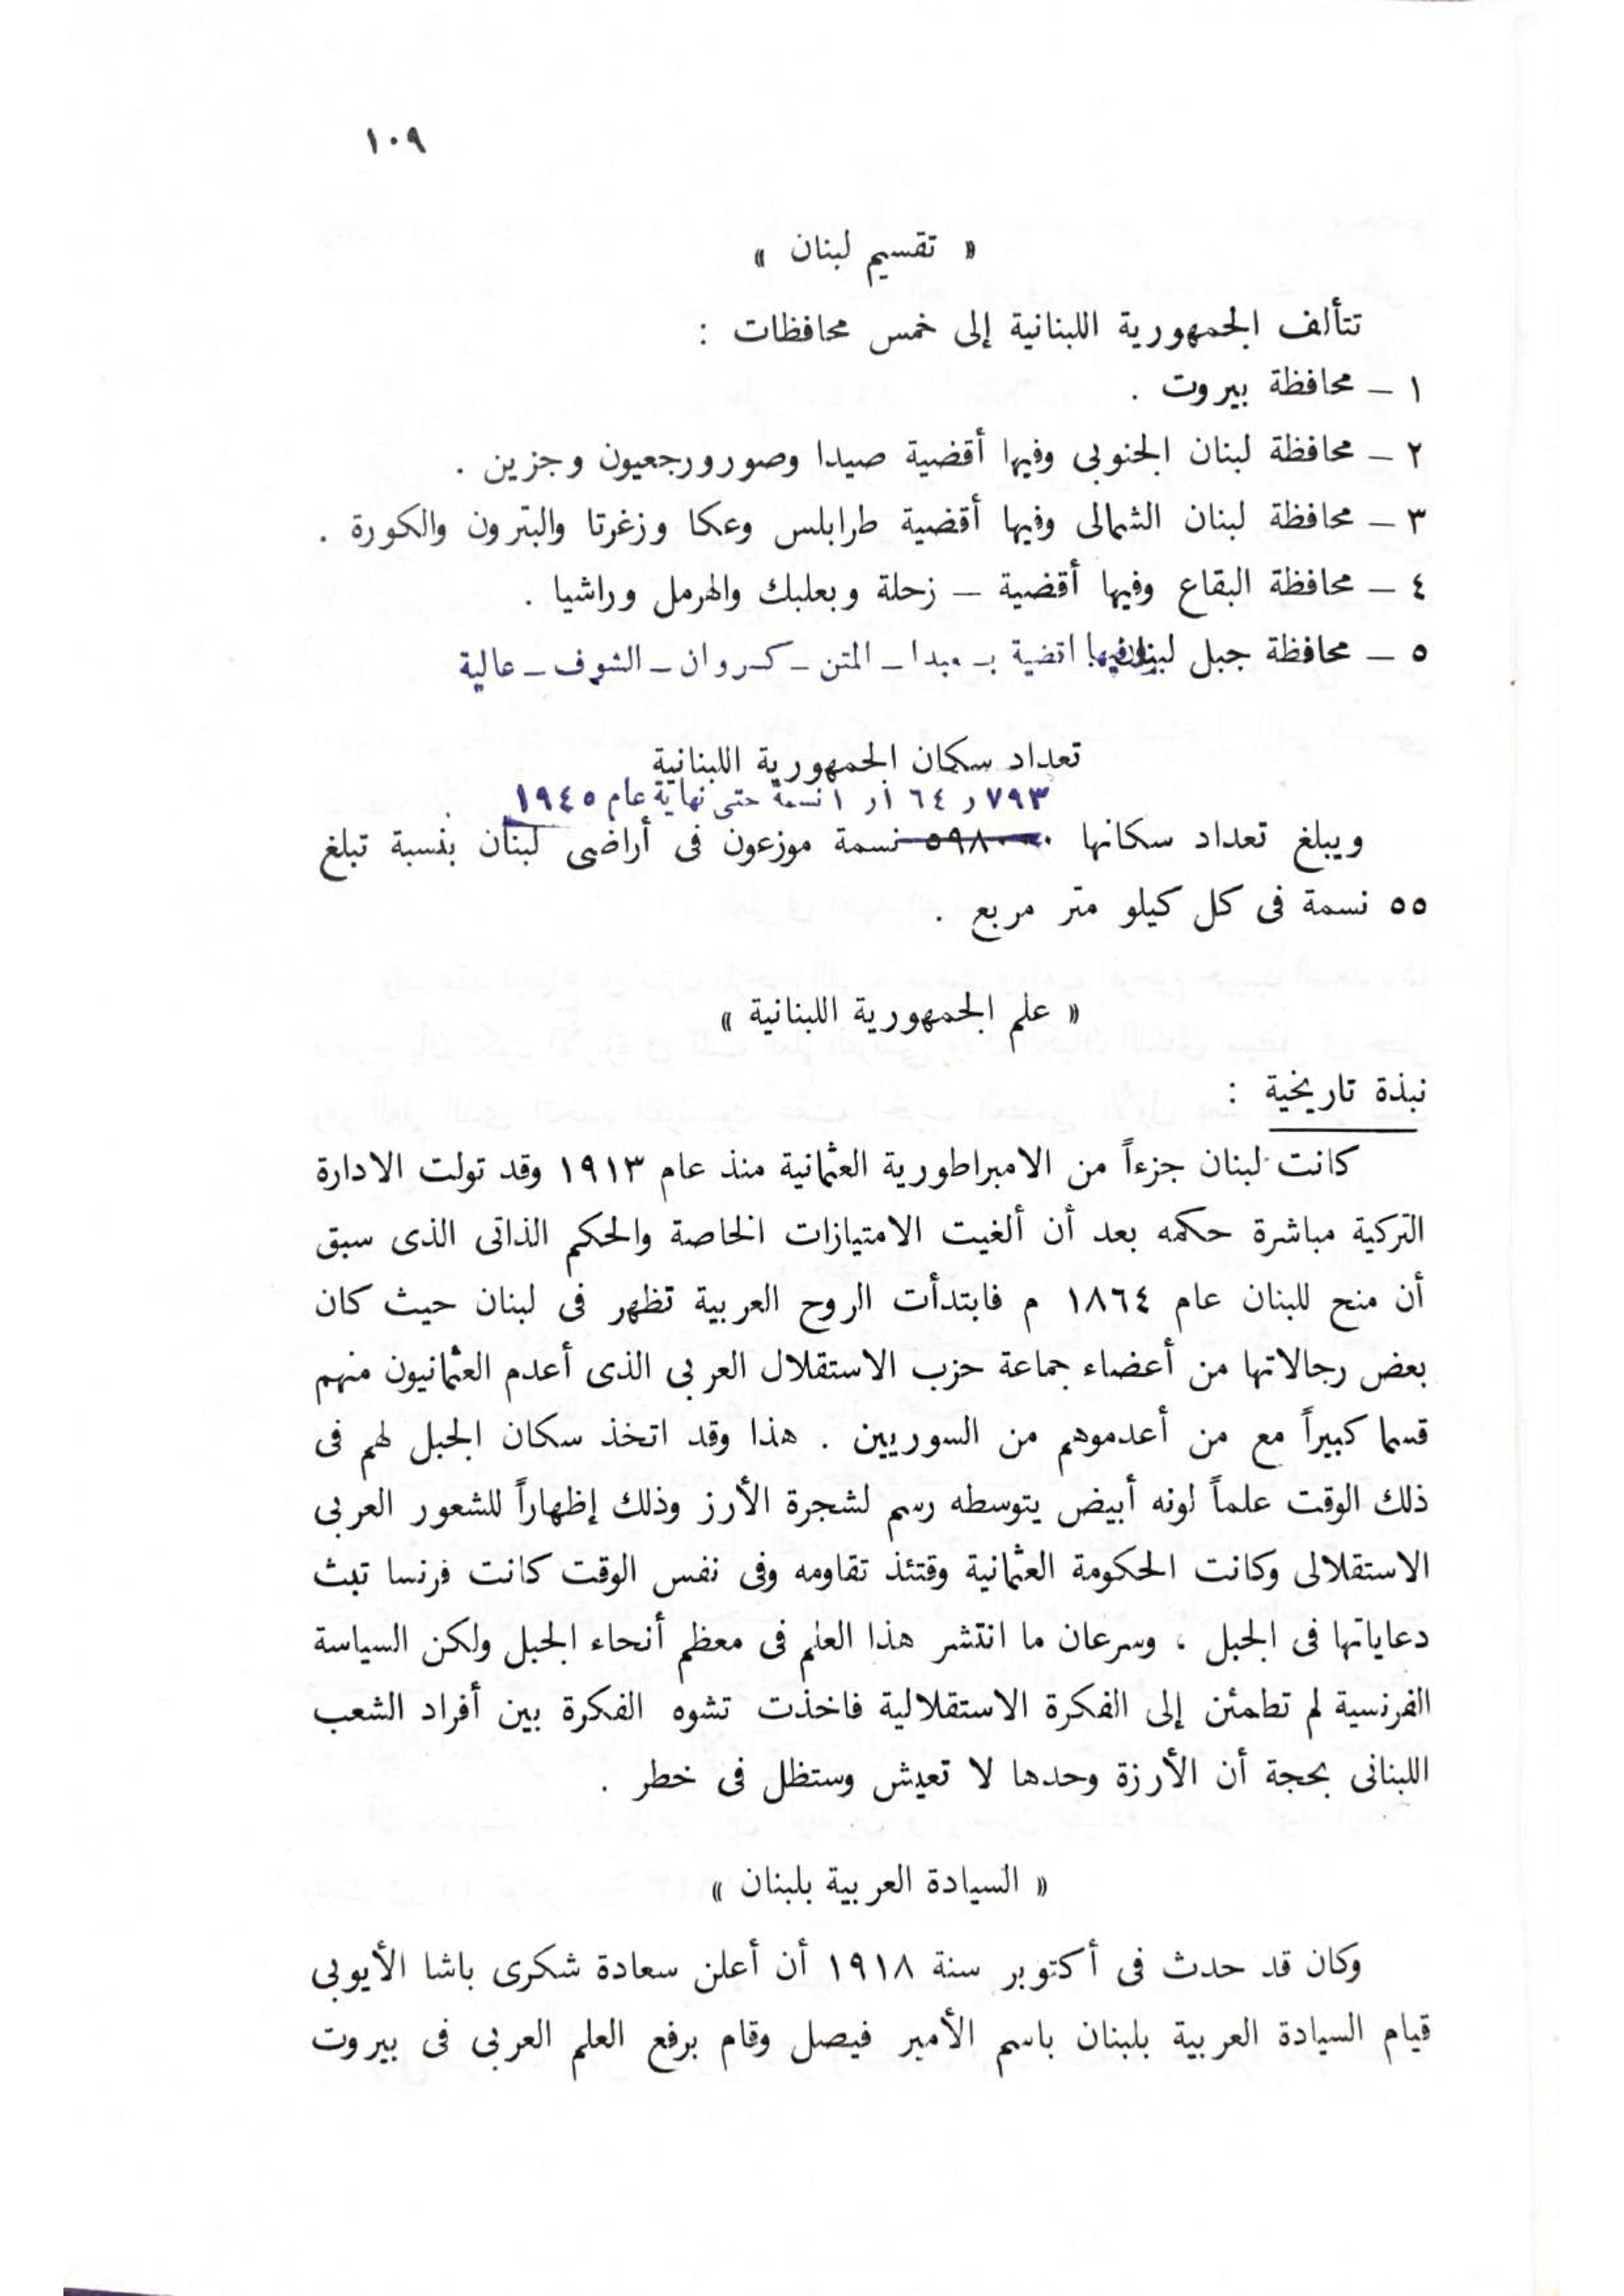 ١٠٩
« تقسيم لبنان »
تتألف الجمهورية اللبنانية إلى خمس محافظات :
١ – محافظة بيروت .
٢ – محافظة لبنان الجنوبى وفيها أقضية صيدا وصور ورجعيون وجزين .
٣ – محافظة لبنان الشمالى وفيها أقضية طرابلس وعكا وزغرتا والبترون والكورة .
٤ – محافظة البقاع وفيها أقضية – زحلة وبعلبك والهرمل وراشيا .
٥ – محافظة جبل لبنان وفيها اقضية بـ عبدا – المتن – كسروان – الشوف – عالية
تعداد سكان الجمهورية اللبنانية
نسمة حتى نهاية عام ١٩٤٥
ويبلغ تعداد سكانها نسمة موزعون فى أراضى لبنان بنسبة تبلغ
٥٥ نسمة فى كل كيلو متر مربع .
« علم الجمهورية اللبنانية »
نبذة تاريخية :
كانت لبنان جزءاً من الامبراطورية العثمانية منذ عام ١٩١٣ وقد تولت الادارة
التركية مباشرة حكمه بعد أن ألغيت الامتيازات الخاصة والحكم الذاتى الذى سبق
أن منح للبنان عام ١٨٦٤ م فابتدأت الروح العربية تظهر فى لبنان حيث كان
بعض رجالاتها من أعضاء جماعة حزب الاستقلال العربى الذى أعدم العثمانيون منهم
قسما كبيراً مع من أعدموهم من السوريين . هذا وقد اتخذ سكان الجبل لهم فى
ذلك الوقت علماً لونه أبيض يتوسطه رسم لشجرة الأرز وذلك إظهاراً للشعور العربى
الاستقلالى وكانت الحكومة العثمانية وقتئذ تقاومه وفى نفس الوقت كانت فرنسا تبث
دعاياتها فى الجبل ، وسرعان ما انتشر هذا العلم فى معظم أنحاء الجبل ولكن السياسة
الفرنسية لم تطمئن إلى الفكرة الاستقلالية فاخذت تشوه الفكرة بين أفراد الشعب
اللبنانى بحجة أن الأرزة وحدها لا تعيش وستظل فى خطر .
« السيادة العربية بلبنان »
وكان قد حدث فى أكتوبر سنة ١٩١٨ أن أعلن سعادة شكرى باشا الأيوبى
قيام السيادة العربية بلبنان باسم الأمير فيصل وقام برفع العلم العربى فى بيروت